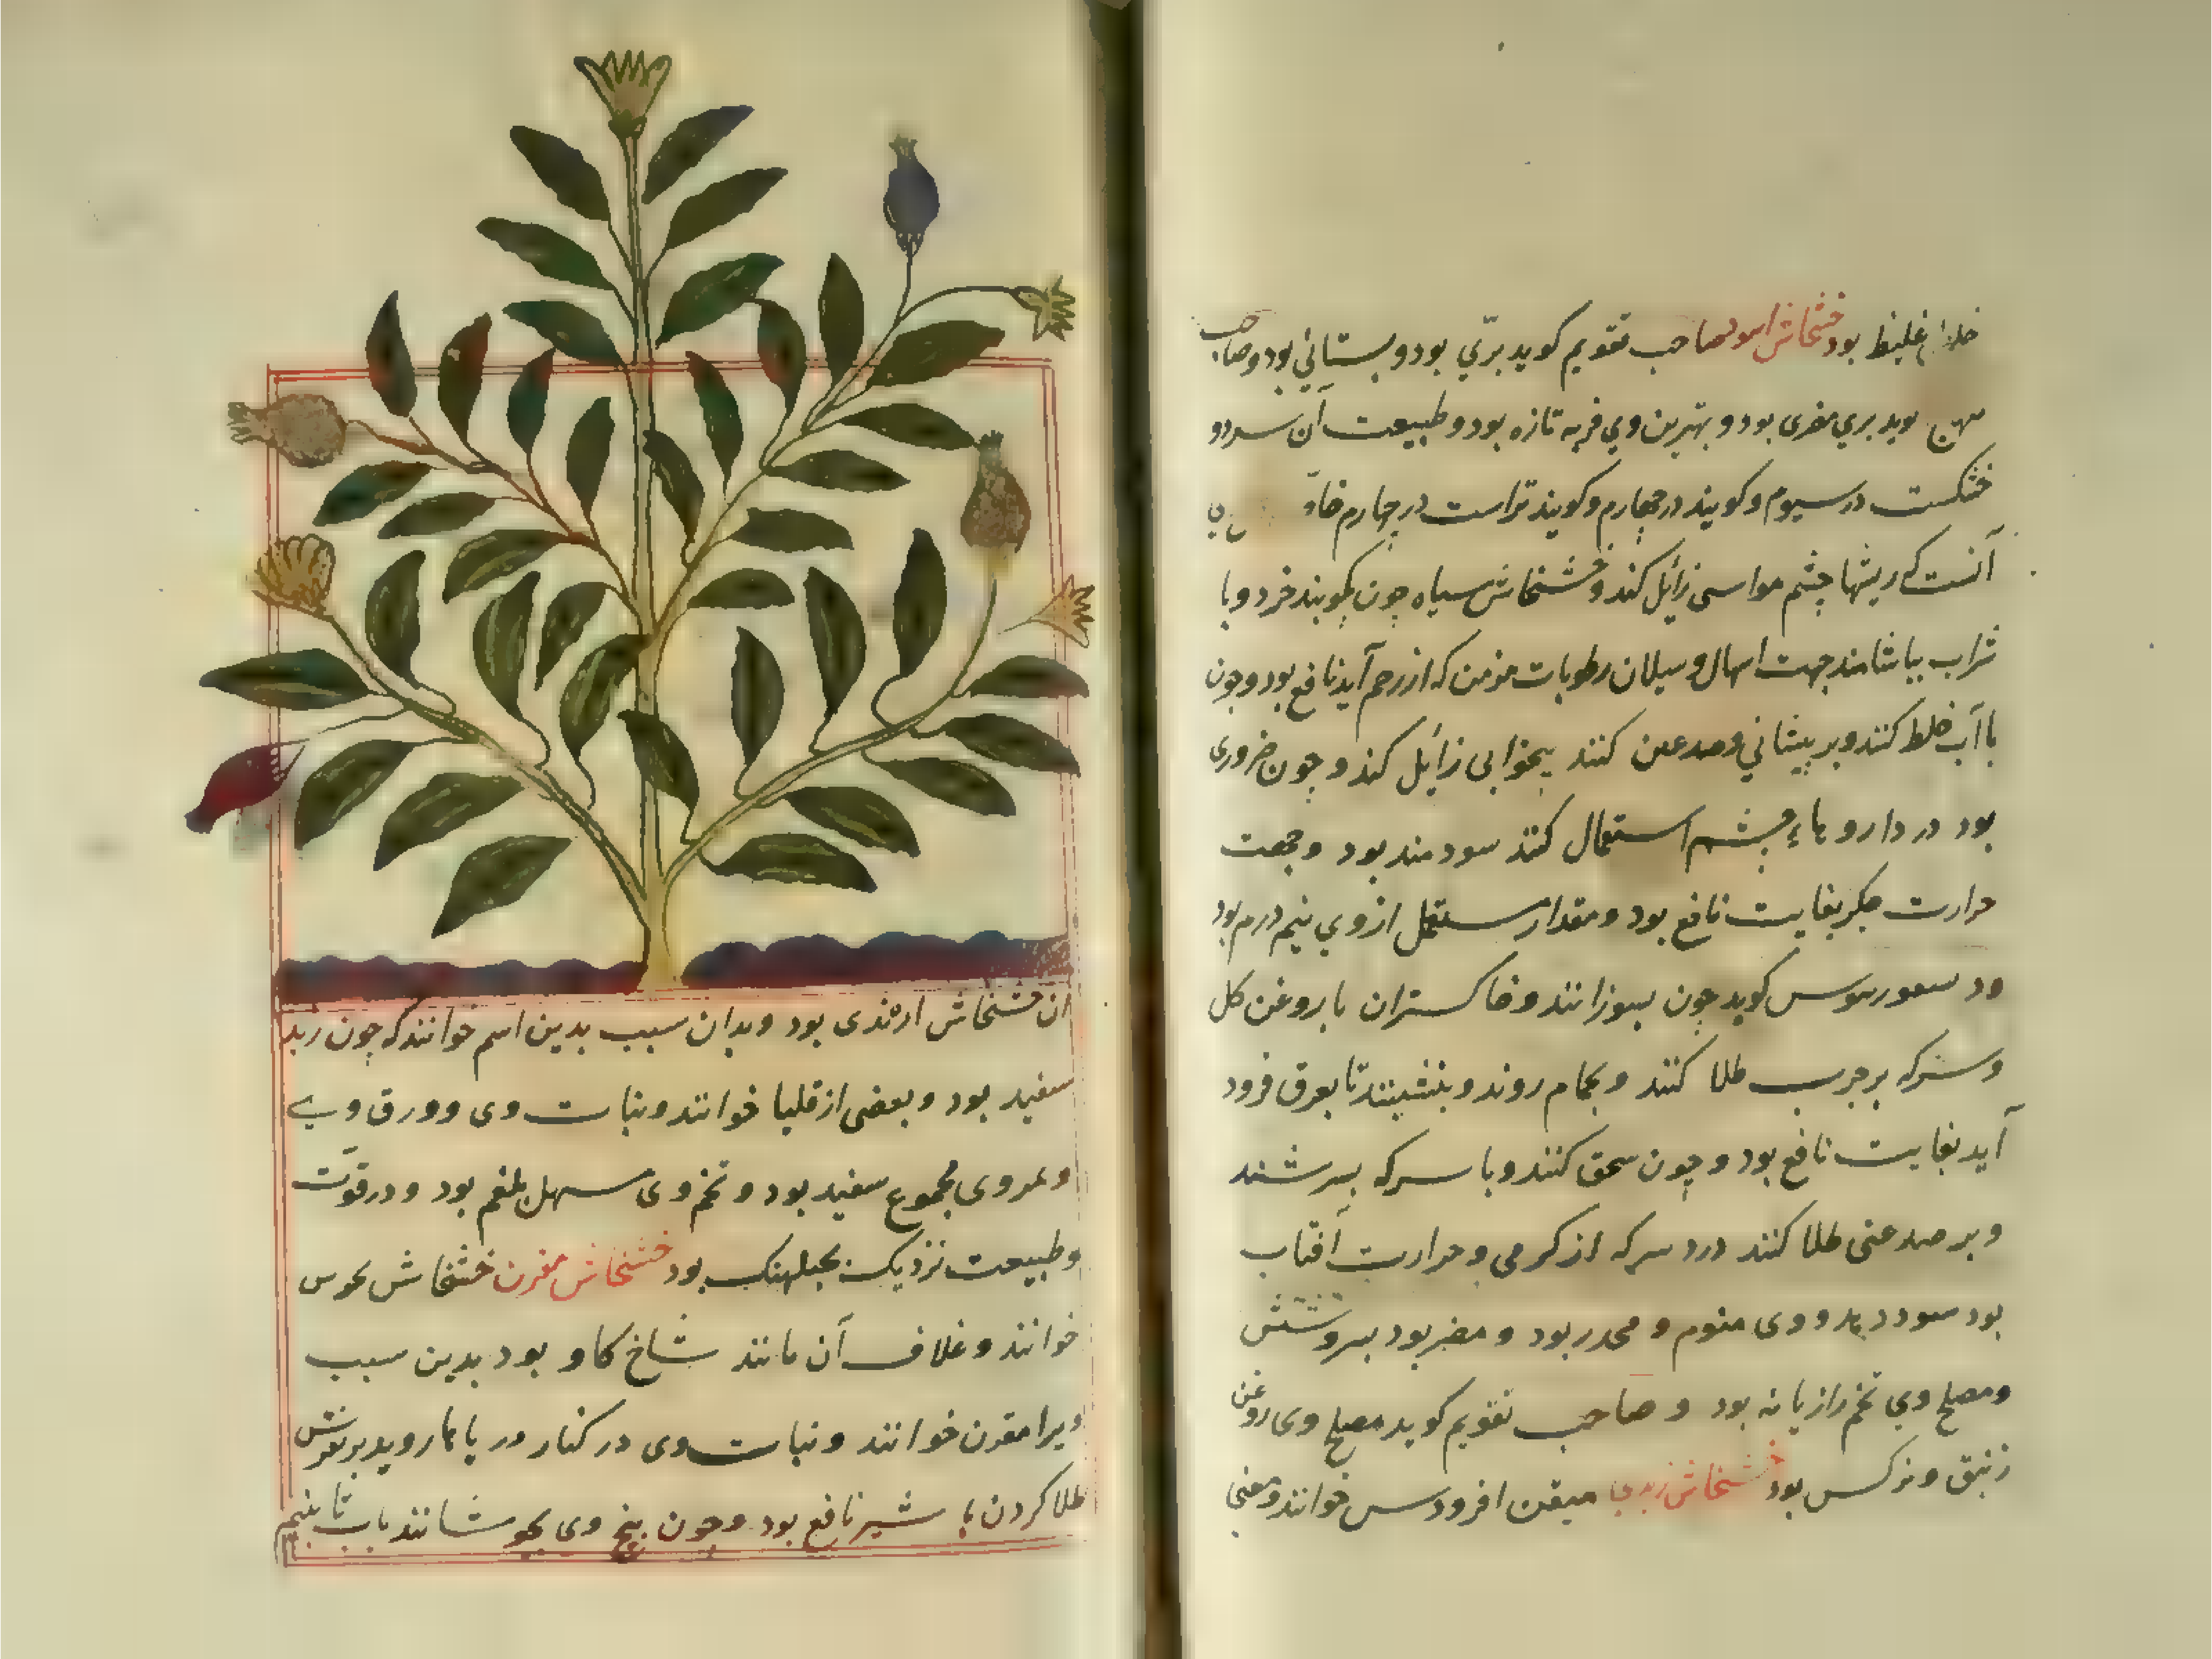 غلیظ بود خشخاش اسود صاحب تقویم کوید برّی بود و بستانی بود و صاحب
بری مقری بود و بهترین وی فربه تازه بود و طبیعت آن سرد و
خشکست در سیوم و کویند در چهارم و کویند تر است در چهارم
آنست که ریشها چشم مواسی زایل کند و خشخاش سیاه چون بکوبند خرد و با
شراب بیاشامند جهت اسهال و سیلان رطوبات مزمن که از رحم آید نافع بود و چون
با آب خلط کنند و بر پیشانی و صدعین کنند بیخوابی زایل کند و چون ضروری
بود در داروهاء چشم استعمال کنند سودمند بود و جهت
حرارت جکر بغایت نافع بود و مقدار مستعمل از وی نیم درم بود
کوید چون بسوزانند و خاکستر آن با روغن کل
و سرکه بر جرب طلا کنند و بحمام روند و بنشینند تا بعرق فرود
آید بغایت نافع بود و چون سحق کنند و با سرکه بسرشند
و بر صدعین طلا کنند درد سر که از کرمی و حرارت آفتاب
بود سود دهد و وی منوم و مخدر بود و مضر بود بسر و شش
و مصلح وی تخم رازیانه بود و صاحب تقویم کوید مصلح وی روغن
زنبق و نرکس بود خشخاش زبدی میقن افرودس خوانند و معنی
ان خشخاش بود و بدان سبب بدین اسم خوانند که چون زبد
سفید بود و بعضی ارقلیا خوانند و نبات وی و ورق وی
و ثمر وی مجموع سفید بود و تخم وی مسهل بلغم بود و در قوّت
و طبیعت نزدیک بجبلهنک بود خشخاش مقرن خشخاش بحری
خوانند و غلاف آن مانند شاخ کاو بود بدین سبب
ویرا مقرن خوانند و نبات وی در کنار دریاها روید
طلا کردن با شیر نافع بود و چون بیخ وی بجوشانند باب تا بنیم